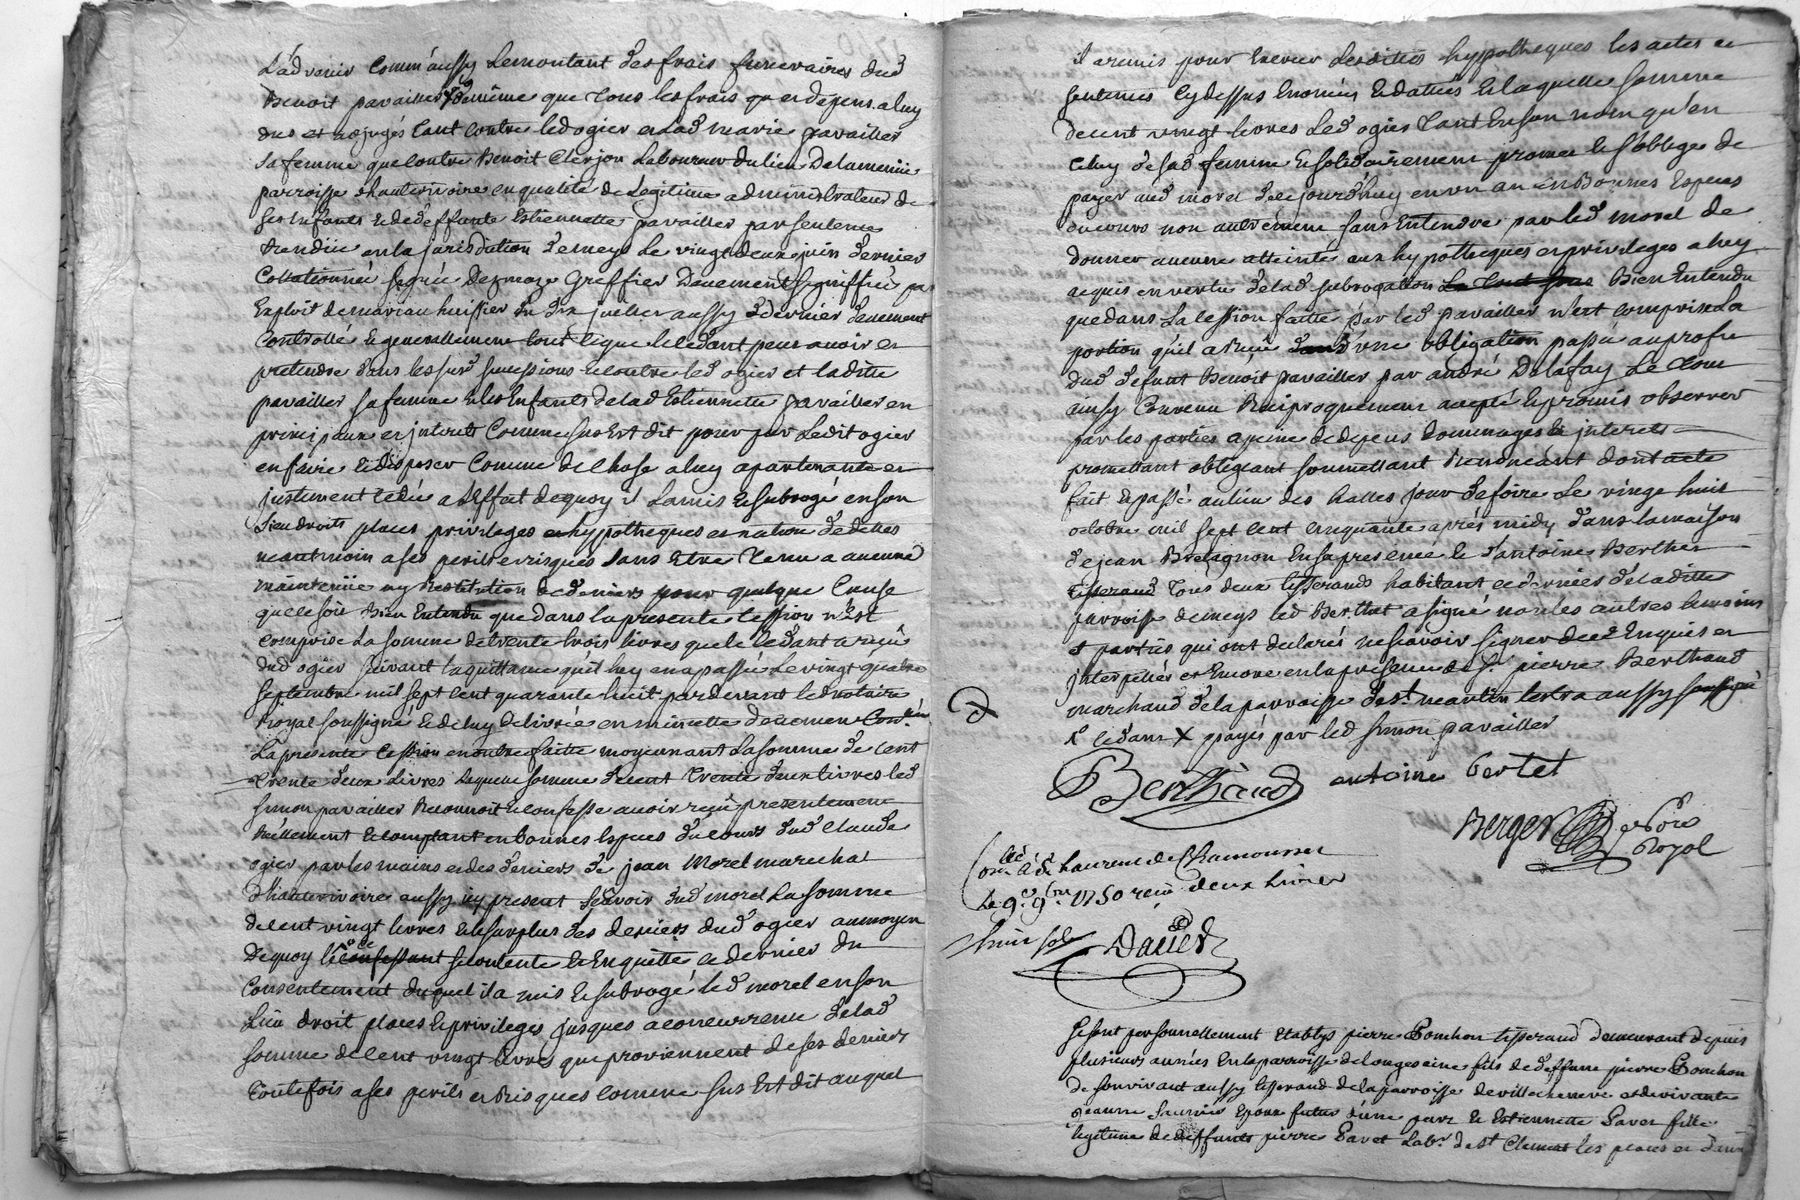 L'advenir comm'aussy le montant des frais funeraires dud
Benoit pavailler & de même que tous les frais qu et depens a luy
dus et adjugés tant contre led ogier et lad marie pavailler
sa femme que contre Benoit Clerjon Laboureur du lieu de la
parroisse d'hauterivoire en qualité de Legitime administrateur de
ses Enfants & de deffunte Estiennette pavailler par sentence
Rendüe en la jurisdiction de meys le vingt deux juin dernier
Collationnée signée Greffier Deuement signiffiée par
Exploit de mariau huissier du dix juillet aussy dernier deuement
Controllé & generallement tout ce que le cedant peut avoir et
pretendre dans les sus successions & contre led ogier et laditte
pavailler sa femme & les Enfants de lad Estiennette pavailler en
principaux et jnterets Comme sus Est dit pour par Ledit ogier
en faire & disposer Comme de Chose a luy apartenante et
justement cedée a l'effet de quoy il l'a mis & subrogé en son
Lieu droits places privileges et hypotheques et nature d'icelles
neantmoin a ses perils et risques sans Etre Tenu a aucune
maintenüe ny Restitution de deniers pour quelque Cause
que ce soit Bien Entendu que dans la presente Cession n'est
comprise La somme de trente trois livres que le cedant a reçu
dud ogier suivant la quittance qu'il luy en a passée Le vingt quatre
septembre mil sept cent quarante huit par devant led notaire
Royal soussigné & de luy delivrée en minutte deuement
La presente Cession en outre faitte moyennant La somme de cent
trente deux Livres Laquelle somme de cent trente deux livres led
simon pavailler Reconnoit & confesse avoir reçu presentement
Réellement & comptant en bonnes Espèces du cours dud Claude
ogier par les mains et des deniers de jean Morel marechal
d'hauterivoire aussy icy present sçavoir dud morel La somme
de cent vingt livres & le surplus des deniers dud ogier au moyen
de quoy le ce confessant se contente & Enquitte ce dernier du
Consentement duquel il a mis & subrogé led morel en son
Lieu droit places & privileges jusques a concurrence de lad
somme de cent vingt livres que proviennent de ses deniers
Toutefois a ses perils et Risques comme sus Est dit auquel
il a remis pour Exercer Lesdittes hypotheques les actes et
sentences cy dessus Enoncés & dattés & laquelle somme
de cent vingt livres Led ogier tant En son nom qu'en
Celuy de sad femme & solidairement promet & s'obblige de
payer aud morel de ce jourd'huy en un an en Bonnes Especes
du cours non autrement sans Entendre par led morel de
donner aucune atteinte aux hypotheques et privileges a luy
acquis en vertu de lad subrogation Le tout sous Bien Entendu
que dans La Cession faitte par led pavailler n'est comprise La
portion qu'il a dans une obligation passée au profit
dud defunt Benoit pavailler par andré Delafay Le tout
ainsy Convenu Reciproquement accepté & promis observer
par les parties a peine de depens dommages & jnterets
promettant obligeant soumettant Renonceant dont acte
fait & passé au lieu des halles jour de foire Le vingt huit
octobre mil sept cent cinquante aprés midy dans la maison
de jean Bretagnon En sa presence & d'antoine Berthet
tisserand Tous deux tisserands habitant ce dernier de laditte
parroisse de meys led Berthet a signé non les autres temoins
& parties qui ont declarés ne sçavoir signer de ce Enquis et
jnterpellés et Encore en la presence de Sr pierre Berthaud
marchand de la parroisse de st martin lestra aussy soussigné
cedant X payés par led simon pavailler
Berthaud antoine Bertet
Berger nore Royal
Con.lé a St Laurent de Chamousset
Le 9e 9bre 1750 reçu deux livres
huit sols David
Se sont personnellement Etablys pierre Ponchon tisserand demeurant depuis
plusieurs années En la parroisse de Longessaine fils de deffunt pierre Ponchon
de son vivant aussy tisserand de la parroisse de villechenève et de vivante
jeanne Epoux futur d'une part & Estiennette Pavet fille
legitime de deffunts pierre Pavet Labr de st Clement les places et